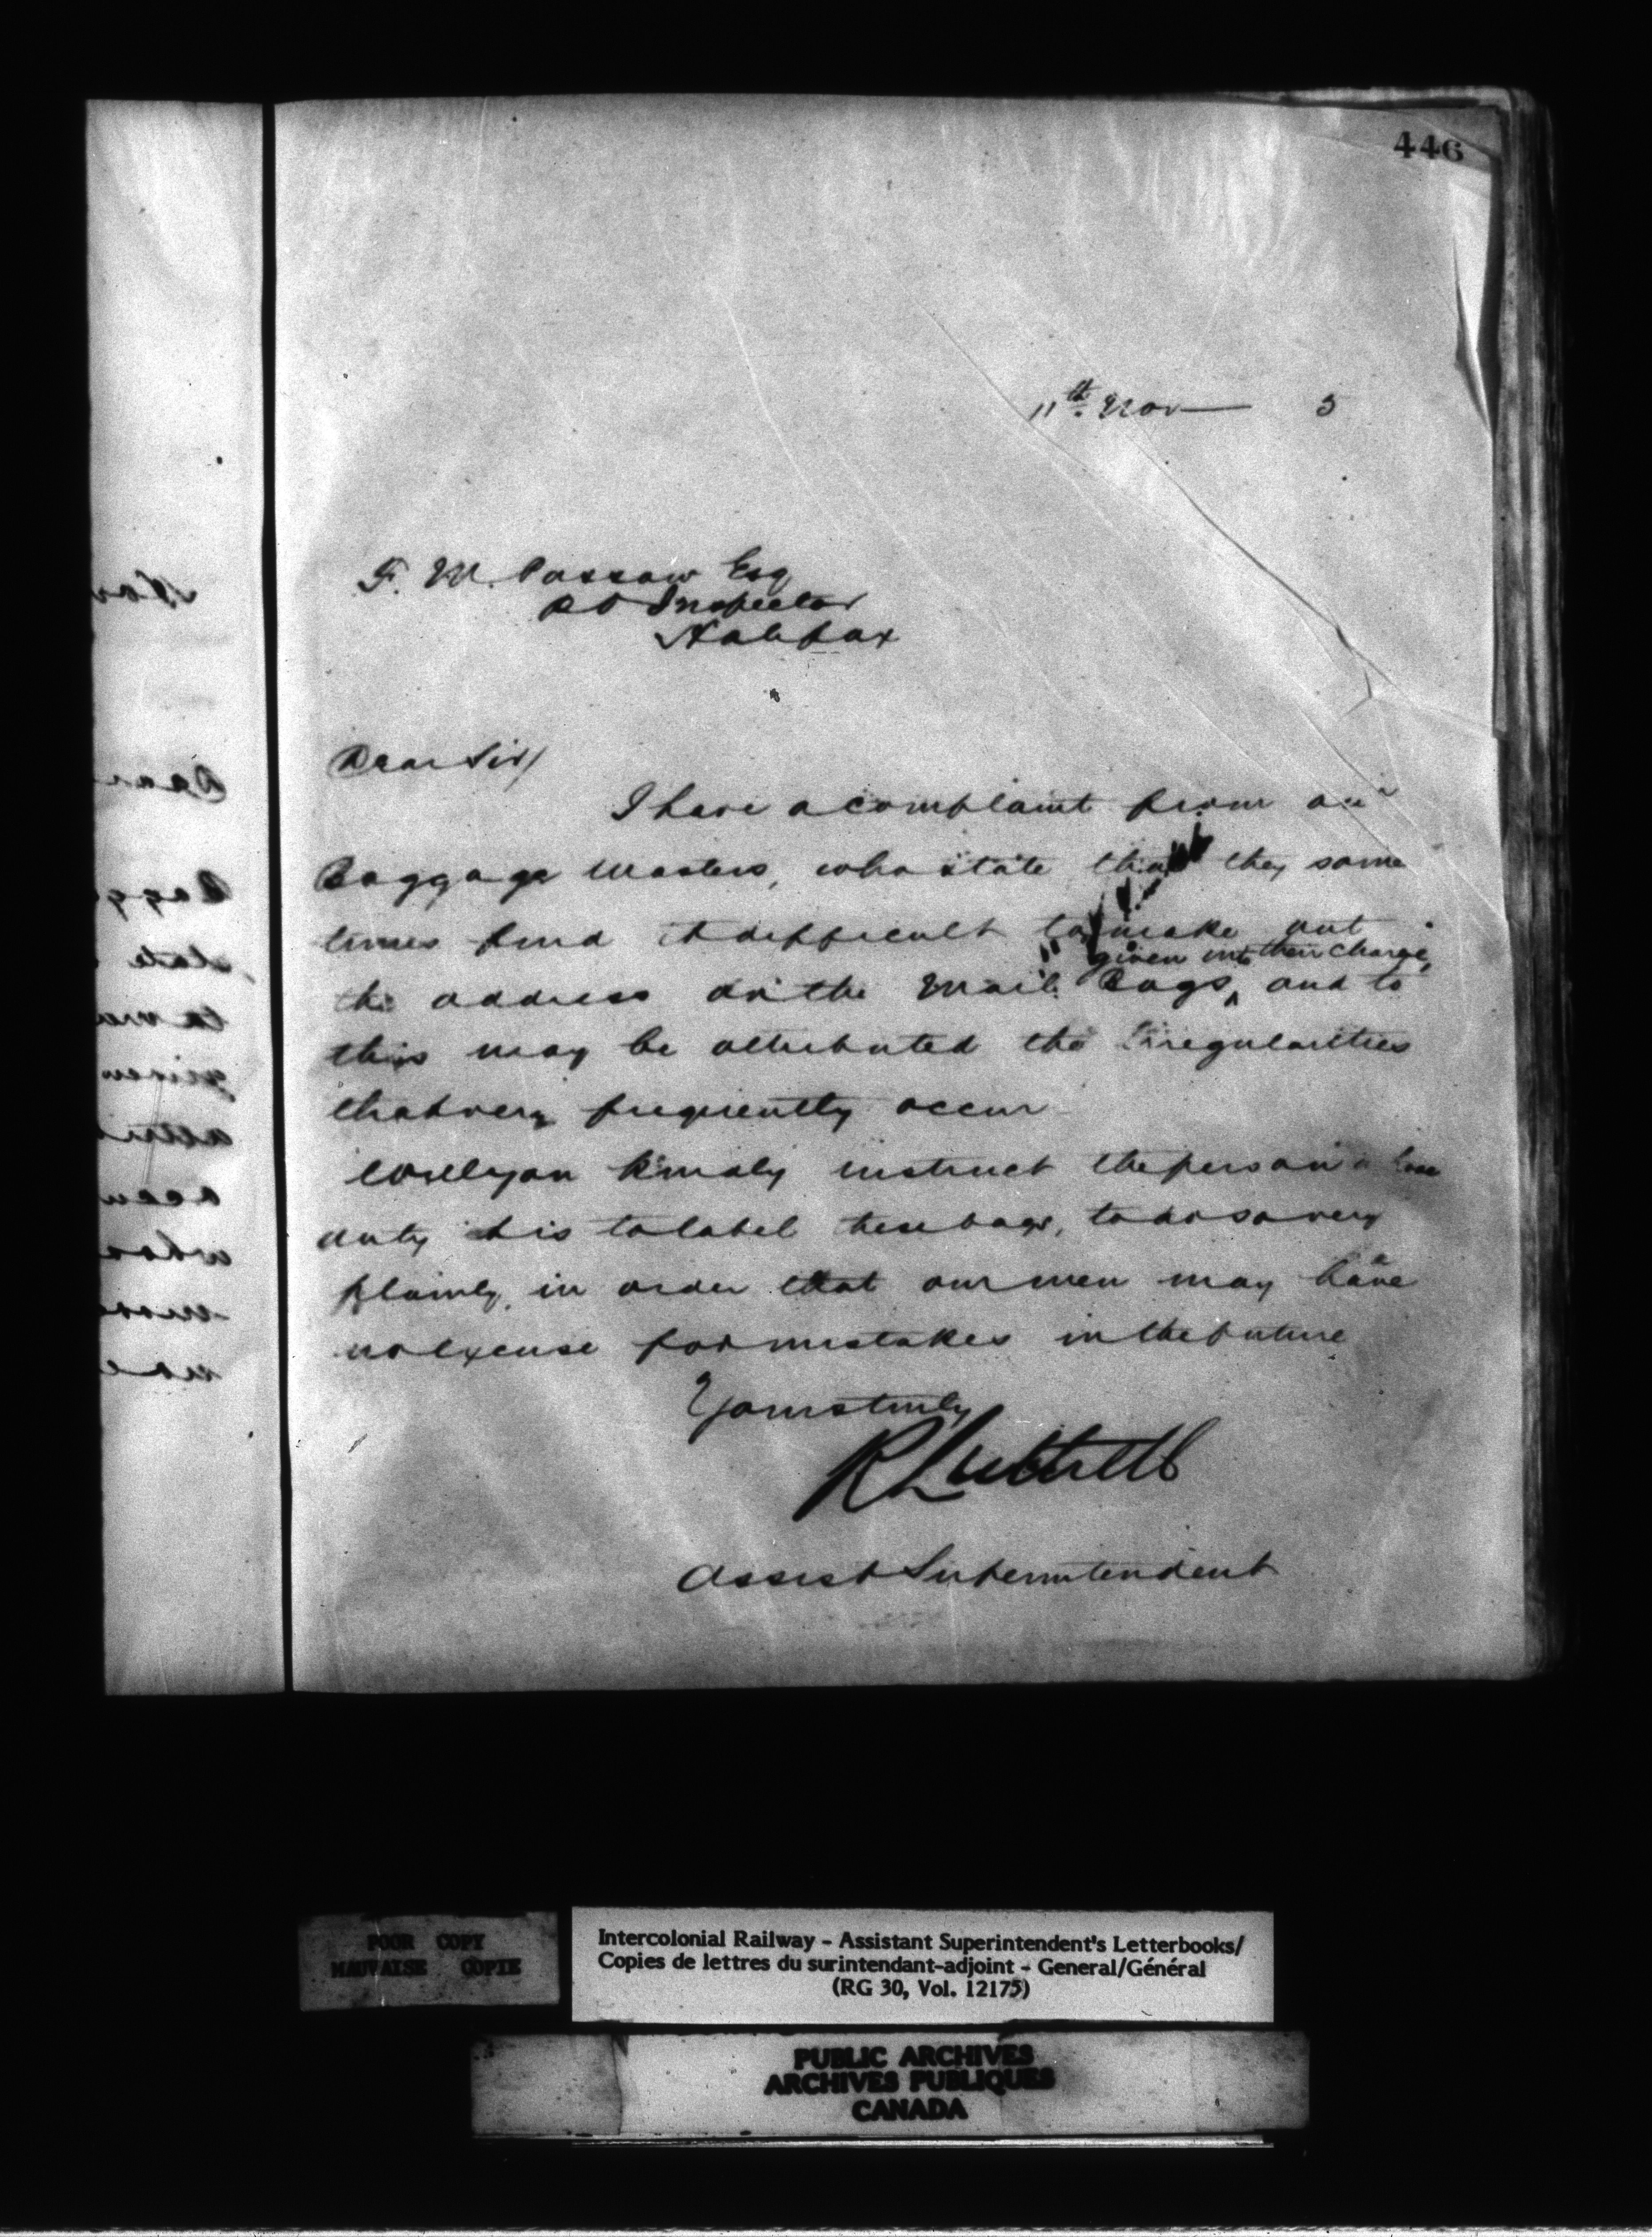 446
11th. Nov 5
F. M. Passow Esq
P O Inspector
Halifax
Dear Sir/
I have a complaint from our
Baggage Masters, who state that they some
times find it difficult to make out
given into their charge,
the address on the Mail Bags, and to
this may be attributed the irregularities
that very frequently occur
Will you kindly instruct the person whose
duty it is to label these bags, to do so very
plainly, in order that our men may have
no excuse for mistakes in the future
Yours truly
R Luttrell
Assist Superintendent
POOR COPY
MAUVAISE COPIE
Intercolonial Railway - Assistant Superintendent's Letterbooks/
Copies de lettres du surintendant-adjoint - General/Général
(RG 30, Vol. 12175)
PUBLIC ARCHIVES
ARCHIVES PUBLIQUES
CANADA